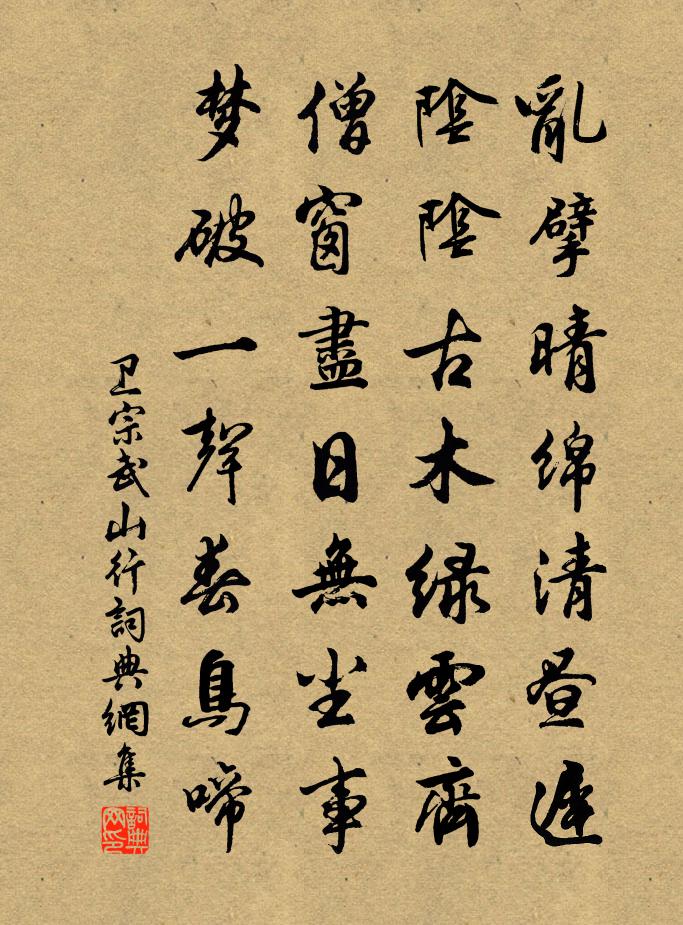 亂擘晴綿清昼遲
陰陰古木緑雲齊
僧窗盡日無尘事
梦破一聲春鳥啼
卫宗武山行詞典網集
詞典网印